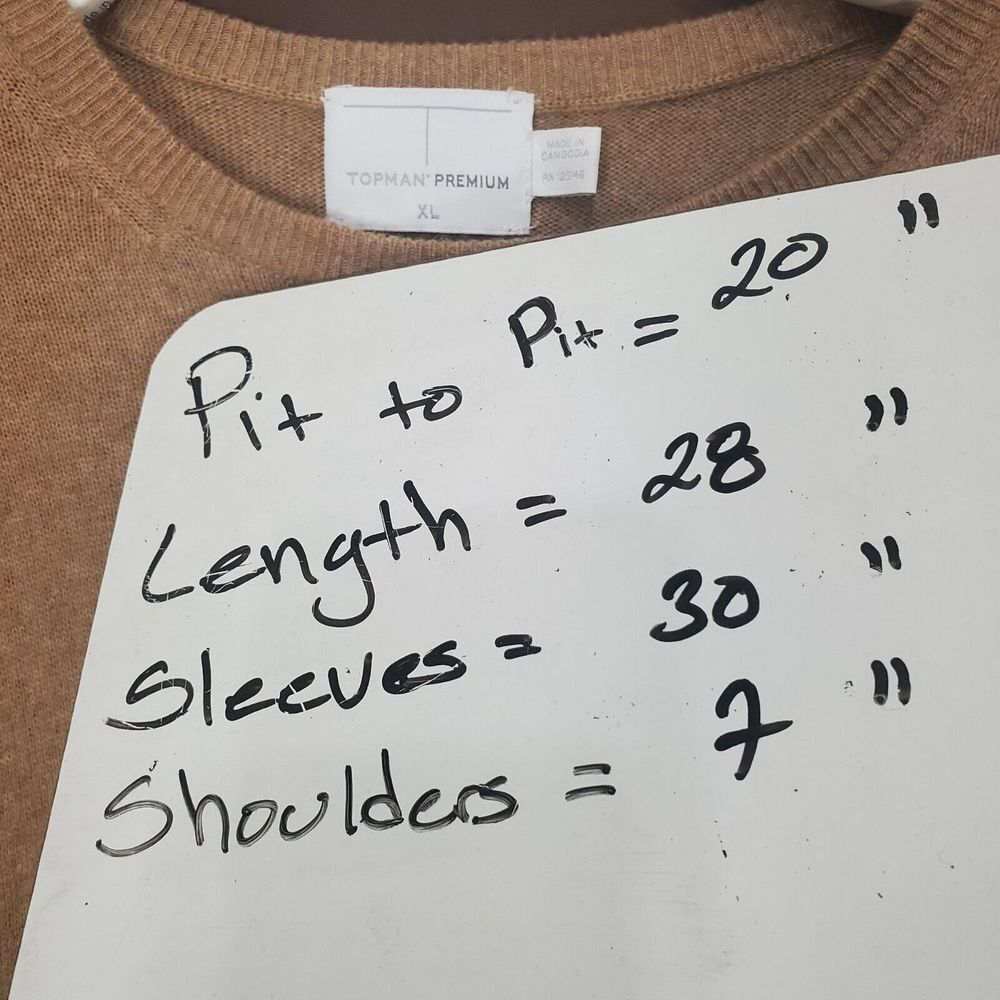 TOPMAN PREMIUM
XL
MADE IN
CAMBODIA
Pit to Pit = 20 "
Length = 28 "
Sleeves = 30 "
Shoulders = 7 "